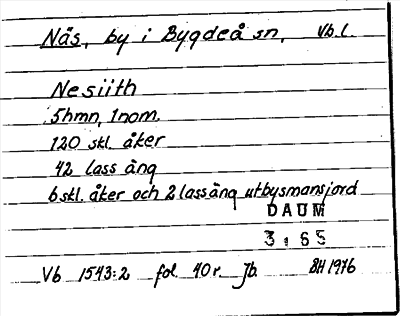 Näs, by i Bygdeå sn, Vb.l.
Nesiith
5hmn, 1nom.
120 skl. åker
42 lass äng
6 skl. åker och 2 lass äng utbysmansjord
DAUM
3165
Vb 1543:2 fol 40r. Jb. BH 1976